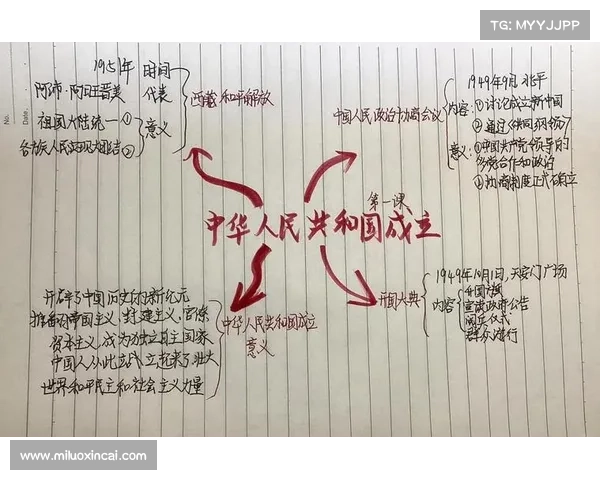 TG: MYYJJPP
No.
Date.
第一课
中华人民共和国成立
中国人民政治协商会议
1949年9月 北平
内容
①讨论成立新中国
②通过《共同纲领》
意义:
①中国共产党领导的
多党合作和政治
协商制度正式确立
开国大典
1949年10月1日,天安门广场
内容
宣读政府公告
阅兵仪式
群众游行
西藏和平解放
1951年 时间
阿沛·阿旺晋美 代表
祖国大陆统一①
意义
各族人民实现大团结②
中华人民共和国成立
意义
开辟了中国历史的新纪元
帝国主义、封建主义、官僚
资本主义,成为独立自主国家
中国人从此站立起来了,壮大
世界和平民主和社会主义力量
www.miluoxincai.com